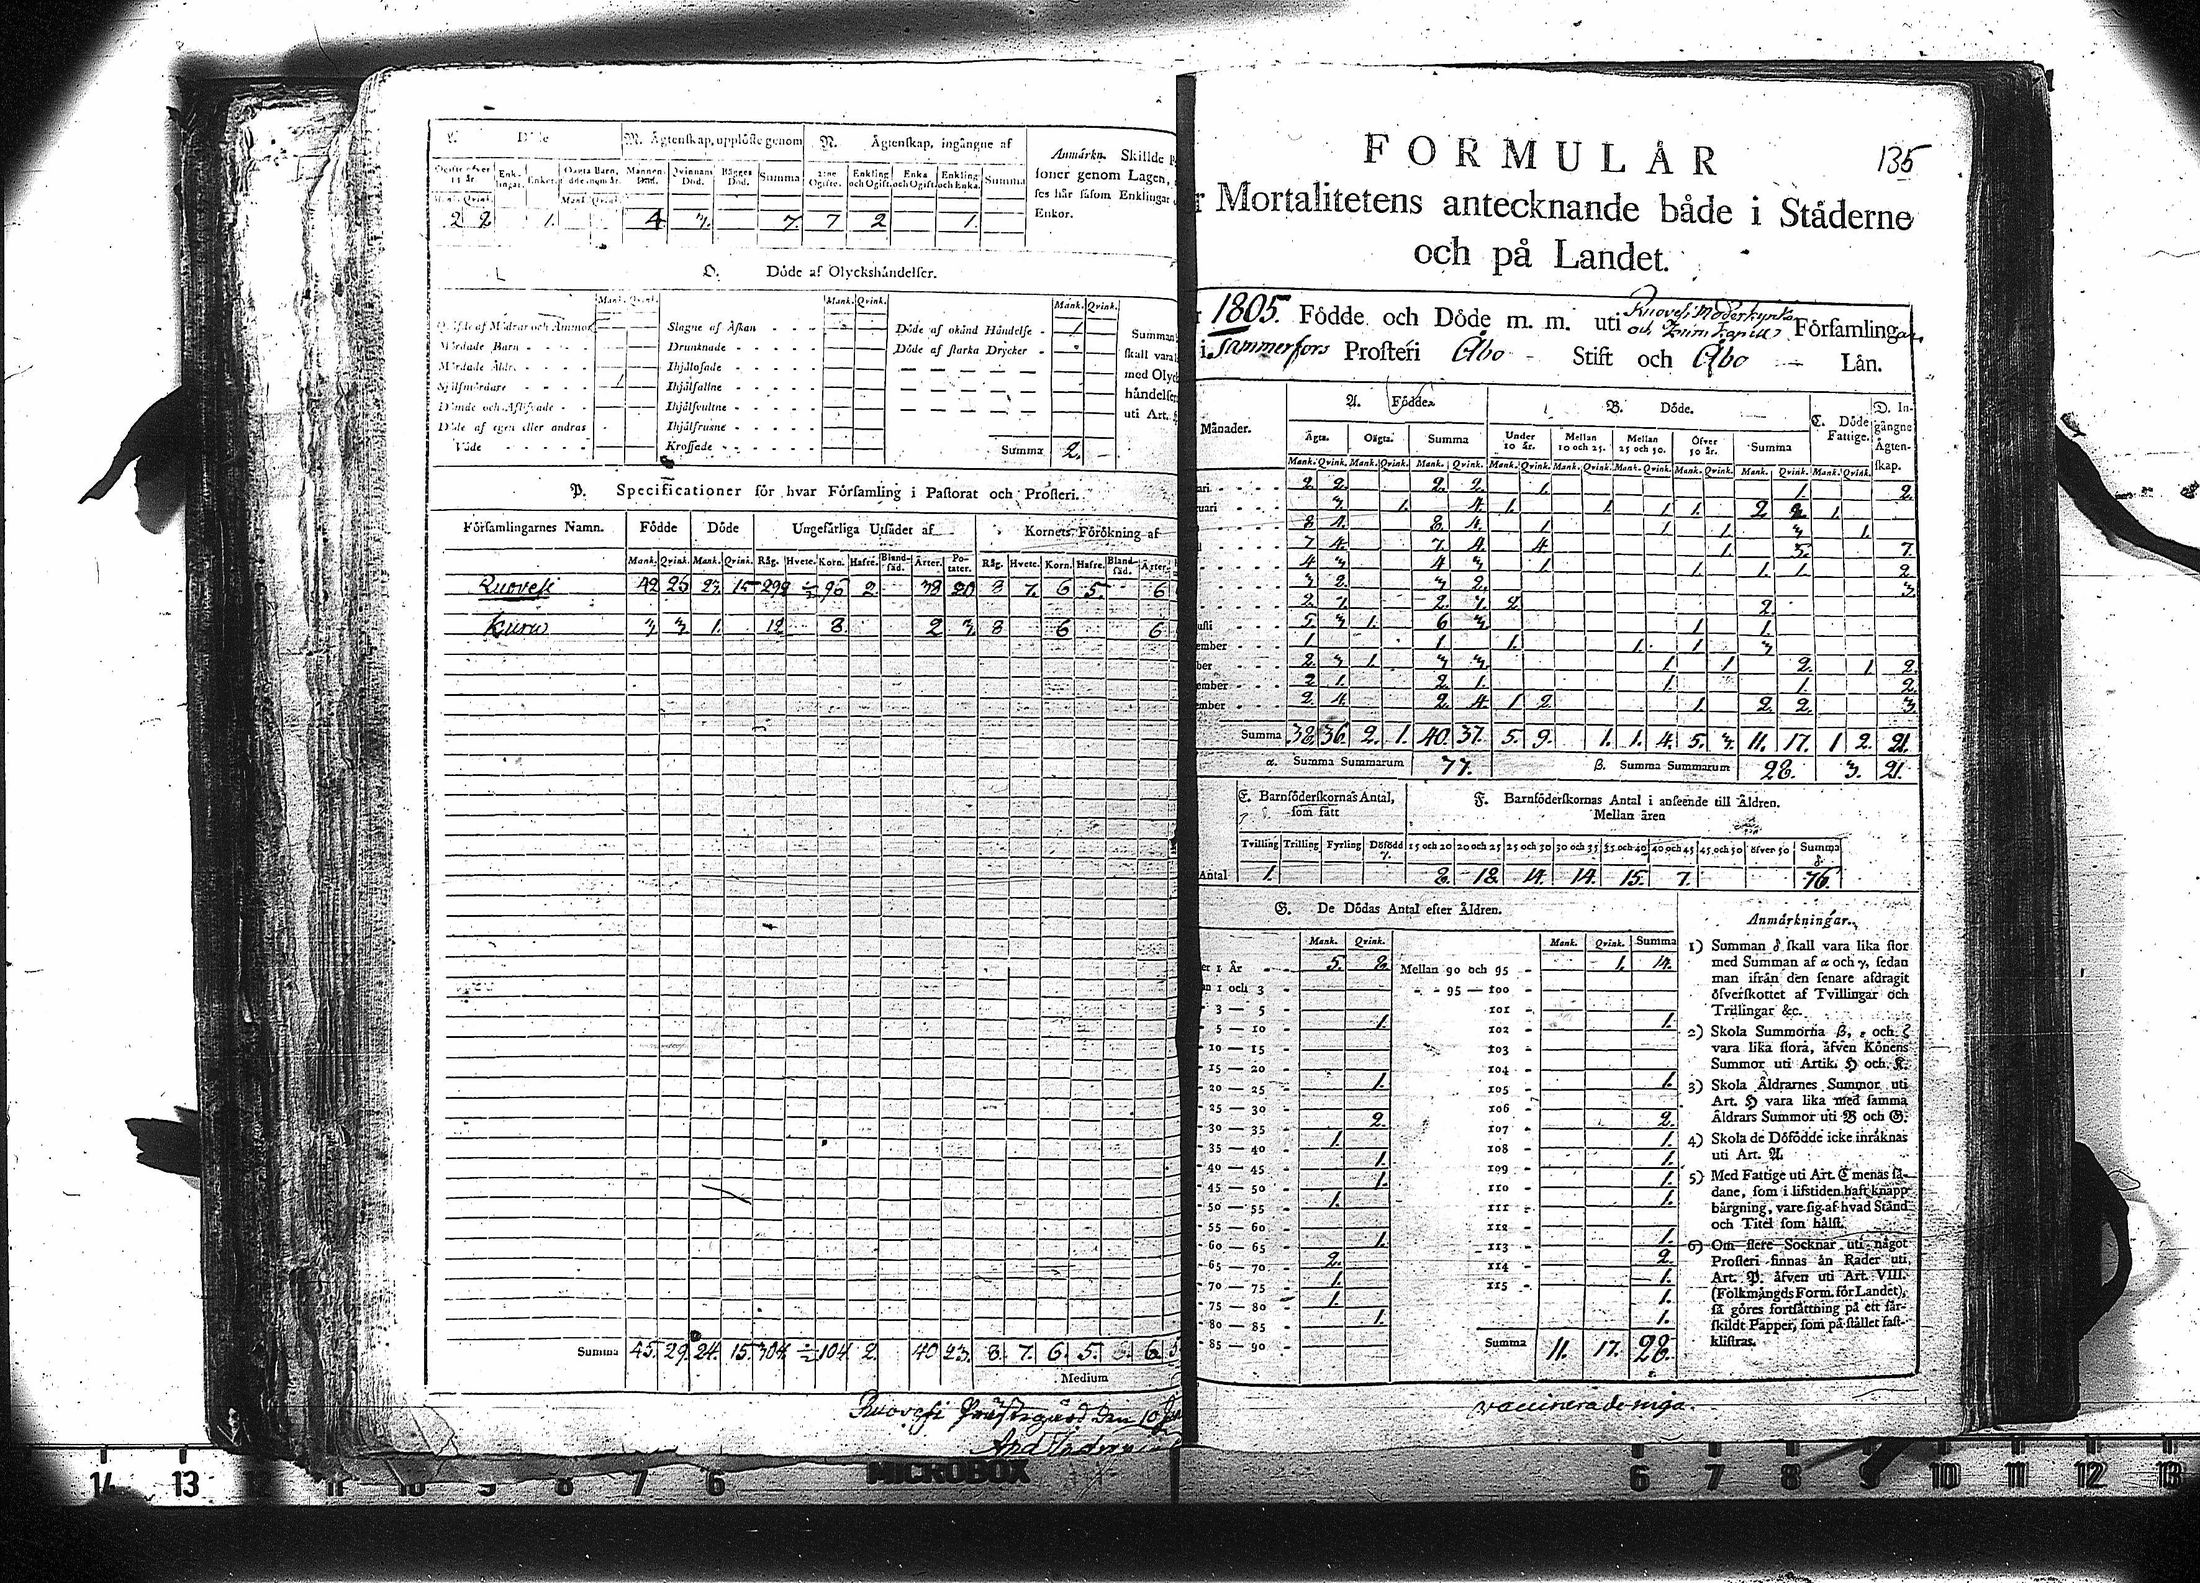 L. Döde
M. Ägtenskap, upplöste genom
N. Ägtenskap, ingångne af
Anmärkn. Skillde
soner genom Lagen,
ses här såsom Enklingar
Enkor.
Ogifte öfver 15 år. Enklingar. Enkor. Oägta Barn, Mannens Död. Qvinnans Död. Bägges Död. Summa 2:ne Ogifte. Enkling och Ogift. Enka och Ogift. Enkling och Enka. Summa
Mank. Qvink. Mank. Qvink.
2 2 1. 4 3. 7. 7 2 1.
O. Döde af Olyckshändelser.
Mank. Qvink. Mank. Qvink. Mank. Qvink.
Qväfde af Mödrar och Ammor Slagne af Åskan - - - Döde af okänd Händelse - 1 Summan
Mördade Barn - - - Drunknade - - - - Döde af starka Drycker - skall vara
Mördade Äldr. - - - - Ihjälosade - - - - med Olyc
Sjelfmördare - - - - 1 Ihjälfallne - - - - händelser
Dömde och Aflifvade - - Ihjälsvultne - - - - uti Art.
Döde af egen eller andras Ihjälfrusne - - - -
Våde - - - - - Krossade - - - - - Summa 2.
P. Specificationer för hvar Församling i Pastorat och Prosteri.
Församlingarnes Namn. Födde Döde Ungefärliga Utsädet af Kornets Förökning af
Mank. Qvink. Mank. Qvink. Råg. Hvete. Korn. Hafre. Blandsäd. Ärter. Potater. Råg. Hvete. Korn. Hafre. Blandsäd. Ärter.
Ruovesi 42 25 23. 15 292 ½ 96 2. 38 20 8 7. 6 5. 6
Kuru 3 3 1. 12 8. 2 3. 8 6 6.
Summa 45. 29. 24. 15. 304. ½ 104. 2. 40 23. 8. 7. 6. 5. 6. 5
Medium
Ruovesi Prästegård den 10
MICROBOX
135
FORMULÄR
Mortalitetens antecknande både i Städerne
och på Landet.
1805. Födde och Döde m. m. uti Ruovesi Moderkyrka Församlingar
i Tammerfors Prosteri Åbo Stift och Åbo Län.
Månader. A. Födde. B. Döde. C. Döde Fattige. D. Ingångne Ägtenskap.
Ägta. Oägta. Summa Under 10 år. Mellan 10 och 25. Mellan 25 och 50. Öfver 50 år. Summa
Mank. Qvink. Mank. Qvink. Mank. Qvink. Mank. Qvink. Mank. Qvink. Mank. Qvink. Mank. Qvink. Mank. Qvink. Mank. Qvink.
ari. - - - 2 2 2. 2. 1. 1. 2
uari - - - 3. 1. 4. 1. 1. 1. 1. 2. 2. 1.
- - - 8 4. 8. 4. 1. 1. 1. 3. 1.
- - - 7 4. 7. 4. 4 1. 5. 7.
- - - 4 3. 4 3. 1. 1. 1. 1. 2
- - - 3 2. 3 2. 3.
- - - 2 7. 2. 7. 2. 2.
usti - - - 5. 3 1. 6 3. 1. 1.
ember - - - 1. 1. 1. 1. 1. 3
ber - - - 2. 3 1. 3 3. 1. 1 2. 1. 2
ember - - - 2 1. 2. 1. 1. 1. 2.
ember - - - 2 4. 2. 4 1 2. 1. 2. 2. 3.
Summa 38. 36. 2. 1. 40. 37. 5. 9. 1. 1. 4. 5. 3. 11. 17. 1 2. 21.
α. Summa Summarum 77. β. Summa Summarum 28. 3. 21.
E. Barnföderskornas Antal, som fått
F. Barnföderskornas Antal i anseende till Åldren.
Mellan åren
Tvilling Trilling Fyrling Dödfödd γ. 15 och 20 20 och 25 25 och 30 30 och 35 35 och 40 40 och 45 45 och 50 öfver 50 Summa δ.
Antal 1. 8. 18. 14. 14. 15. 7. 76.
G. De Dödas Antal efter Åldren.
Mank. Qvink. Mank. Qvink. Summa
er 1 År - - 5. 8. Mellan 90 och 95 - 1. 14.
n 1 och 3 - - - 95 — 100 -
3 — 5 - 101 -
5 — 10 - 1. 102 - 1.
10 — 15 - 103 -
15 — 20 - 104 -
20 — 25 - 1. 105 - 1.
25 — 30 - 106 -
30 — 35 - 2. 107 - 2.
35 — 40 - 1. 108 - 1.
40 — 45 - 1. 109 - 1.
45 — 50 - 1. 110 - 1.
50 — 55 - 1. 111 - 1.
55 — 60 - 112 -
60 — 65 - 1. 113 - 1.
65 — 70 - 2. 114 - 2.
70 — 75 - 1. 115 - 1.
75 — 80 - 1. 1.
80 — 85 - 1. 1.
85 — 90 - Summa 11. 17. 28.
Anmärkningar.
1) Summan δ skall vara lika stor
med Summan af α och γ, sedan
man ifrån den senare afdragit
öfverskottet af Tvillingar och
Trillingar &c.
2) Skola Summorna β, ε och ζ
vara lika stora, äfven Könens
Summor uti Artik. H och K.
3) Skola Åldrarnes Summor uti
Art. H vara lika med samma
Åldrars Summor uti B och G.
4) Skola de Döfödde icke inräknas
uti Art. A.
5) Med Fattige uti Art. C menas så-
dane, som i lifstiden haft knapp
bärgning, vare sig af hvad Stånd
och Titel som hälst.
6) Om flere Socknar uti något
Prosteri finnas än Rader uti
Art. P. äfven uti Art. VIII.
(Folkmängds Form. för Landet),
så göres fortsättning på ett sär-
skildt Papper, som på stället fast-
klistras.
vaccinerade inga.
14 13 12 11 10 9 8 7 6 6 7 8 9 10 11 12 13